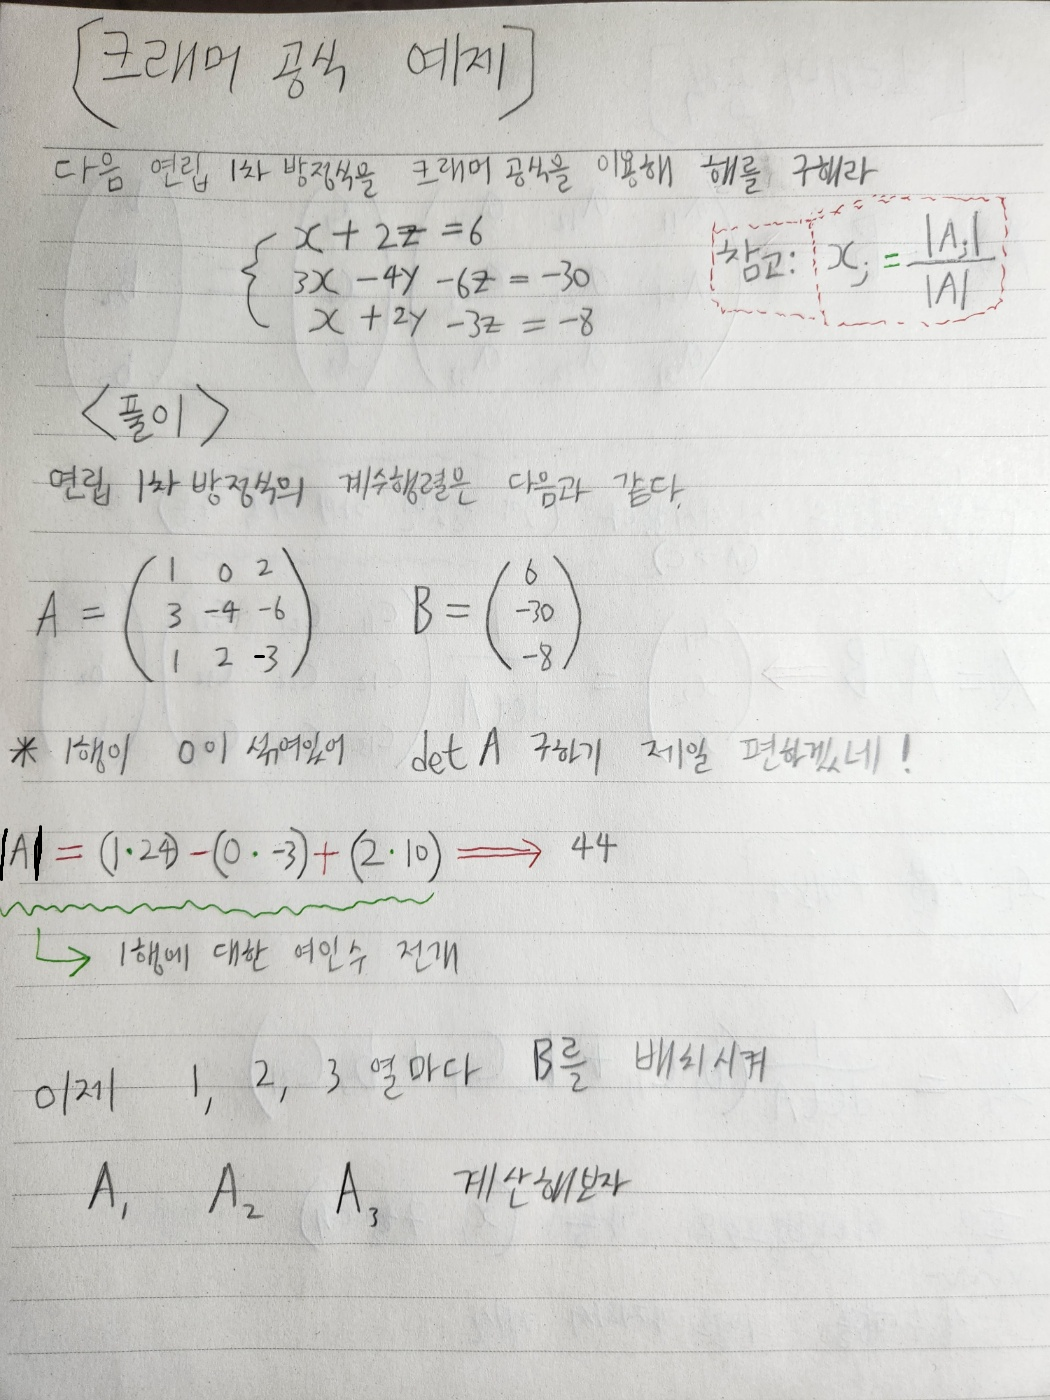 [크래머 공식 예제]
다음 연립 1차 방정식을 크래머 공식을 이용해 해를 구해라
x + 2z = 6
3x - 4y - 6z = -30
x + 2y - 3z = -8
참고: xⱼ = |Aⱼ| / |A|
<풀이>
연립 1차 방정식의 계수행렬은 다음과 같다.
A = ( 1 0 2
3 -4 -6
1 2 -3 )
B = ( 6
-30
-8 )
* 1행이 0이 섞여있어 det A 구하기 제일 편하겠네!
|A| = (1·24) - (0·-3) + (2·10) ⟹ 44
↳ 1행에 대한 여인수 전개
이제 1, 2, 3 열마다 B를 배치시켜
A₁ A₂ A₃ 계산해보자